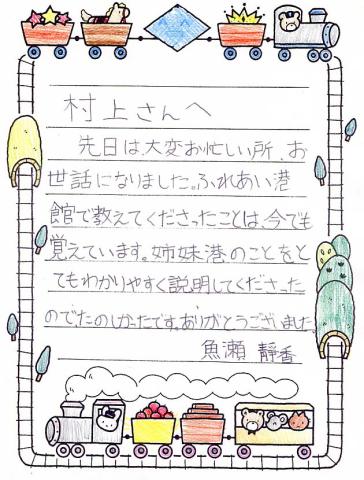 村上さんへ
先日は、大変お忙しい所、お
世話になりました。ふれあい港
館で教えてくださったことは、今でも
覚えています。姉妹港のことをと
てもわかりやすく説明してくださった
のでたのしかったです。ありがとうございました
魚瀬 静香